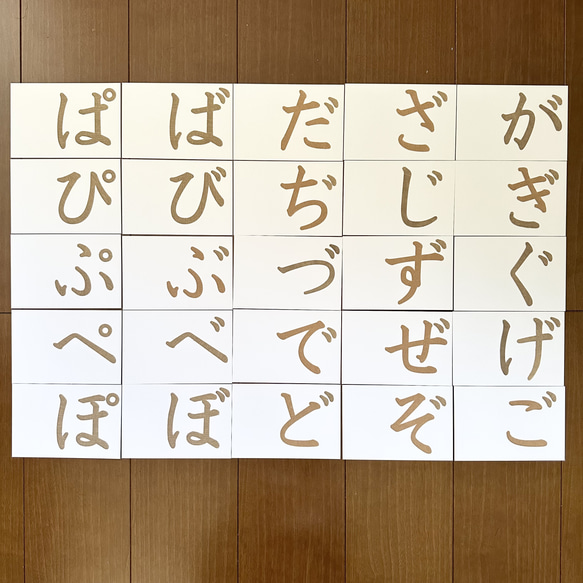 ぱ ば だ ざ が
ぴ び ぢ じ ぎ
ぷ ぶ づ ず ぐ
ぺ べ で ぜ げ
ぽ ぼ ど ぞ ご